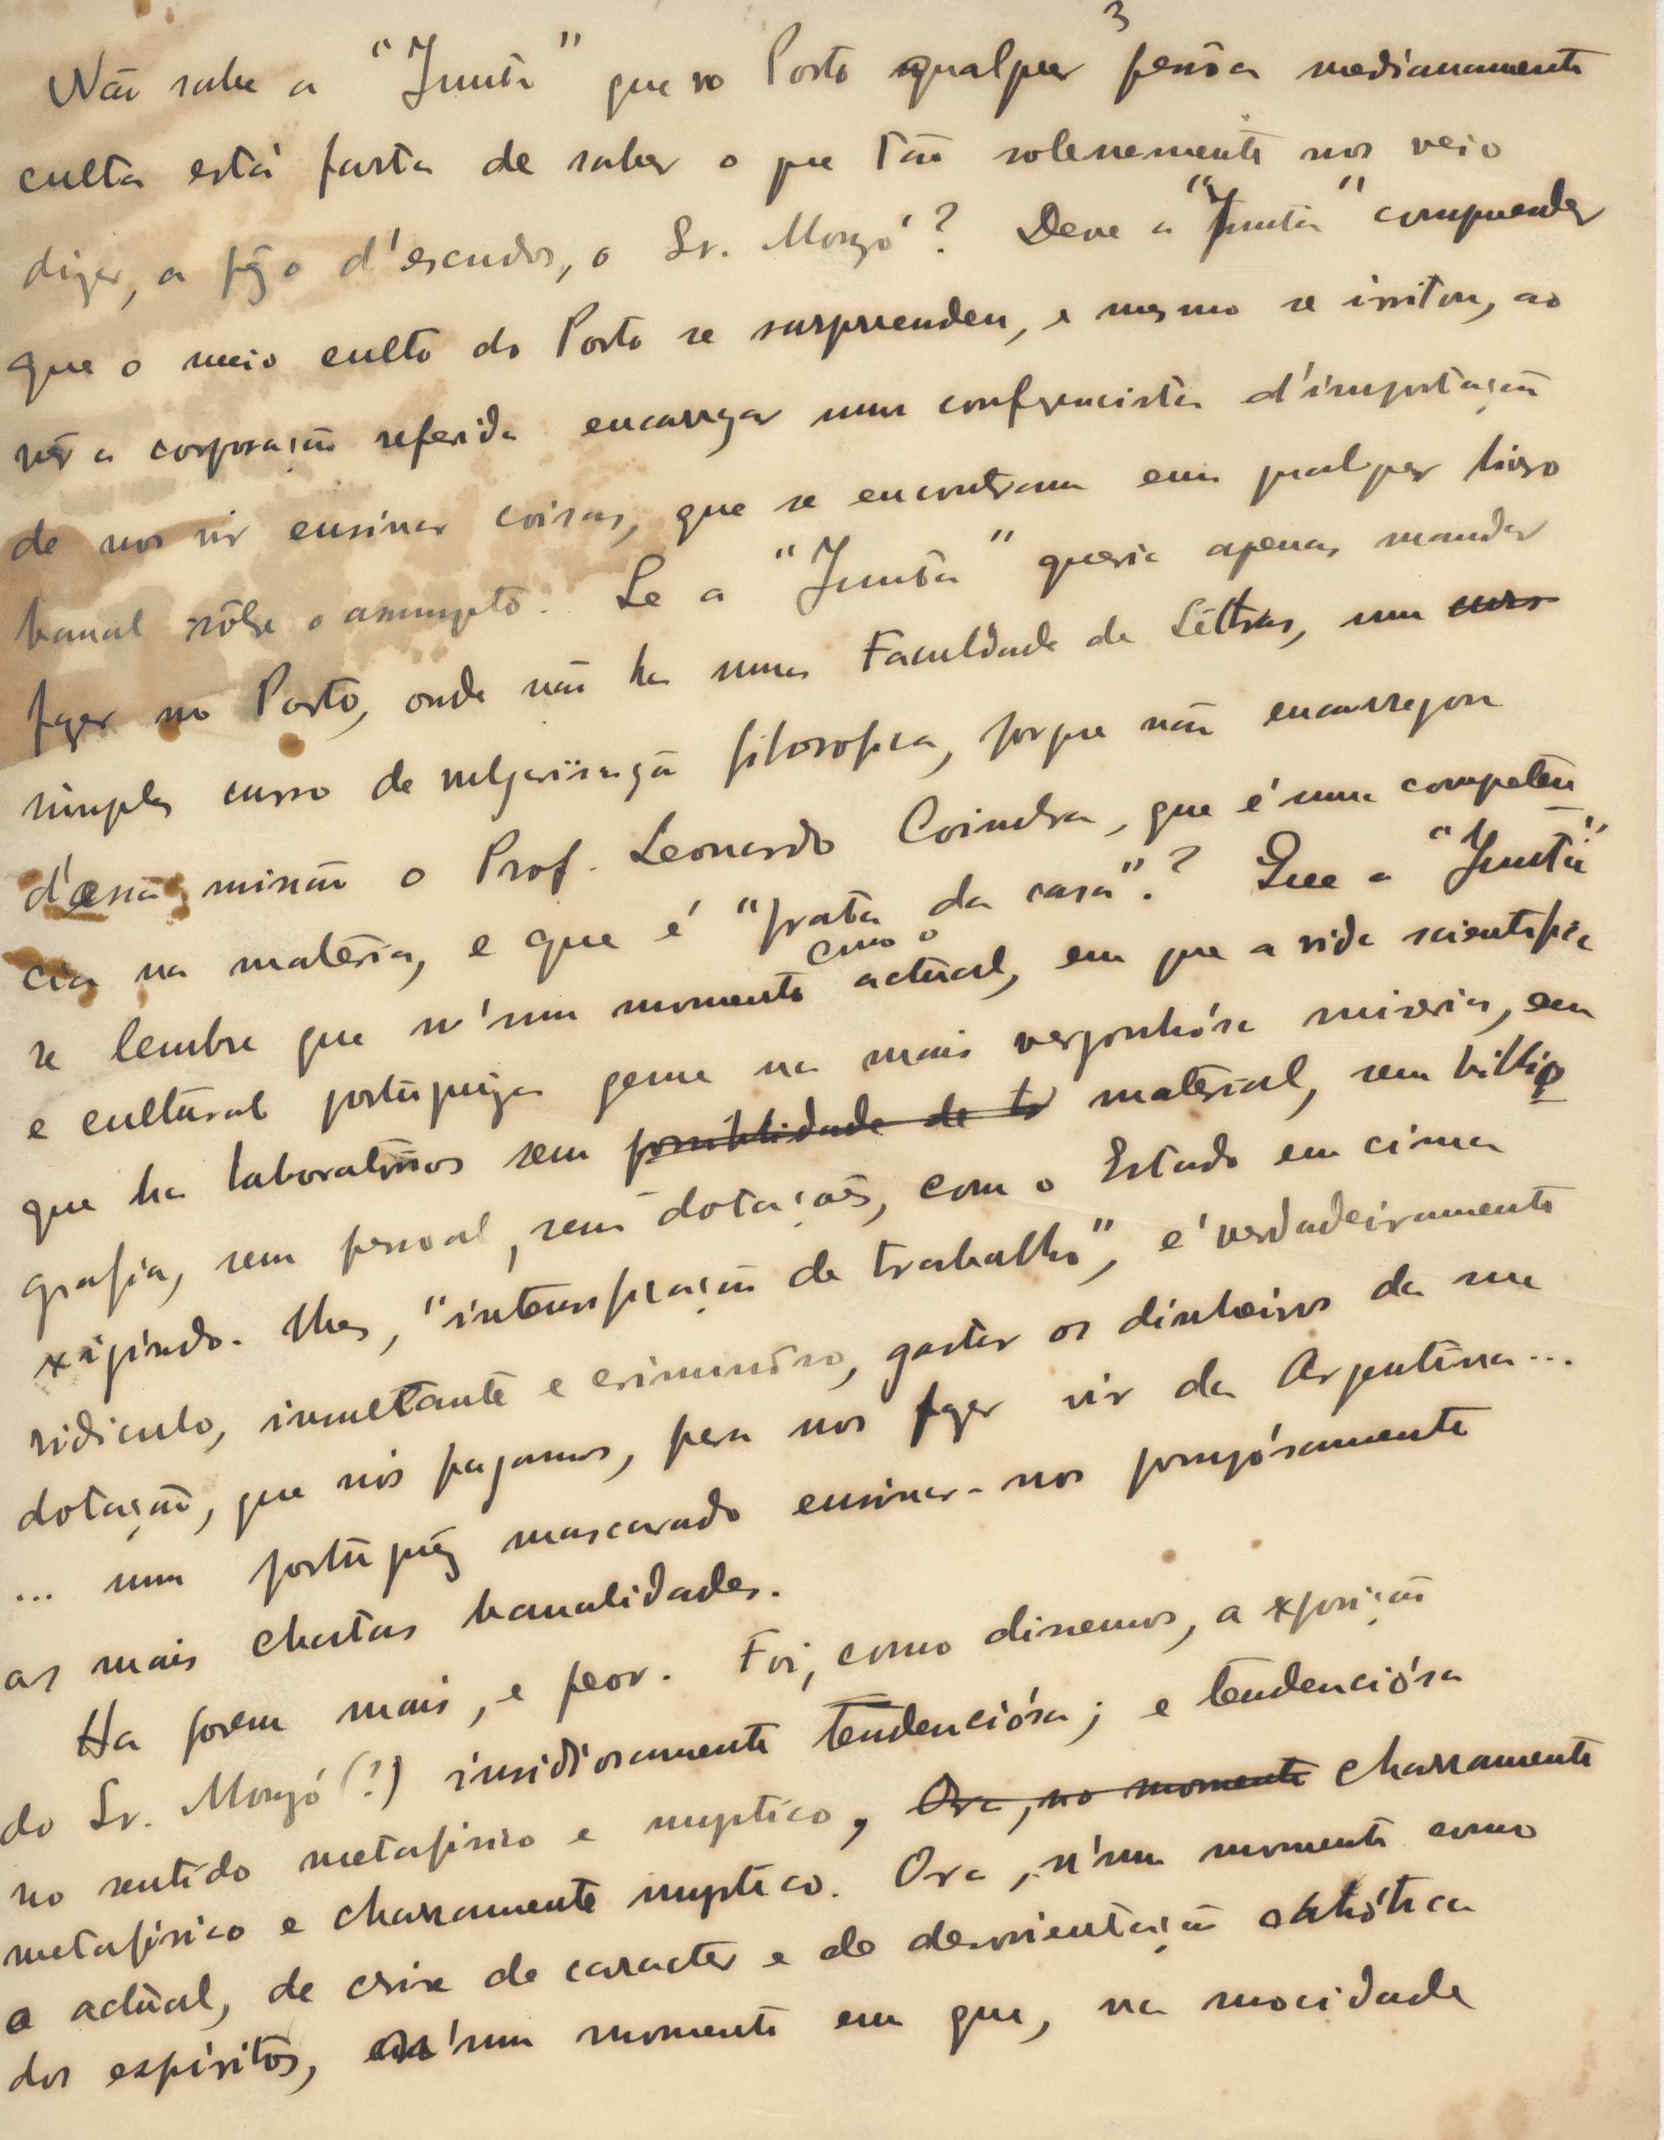 3
Não sabe a "Junta" que no Porto qualquer pessôa medianamente
culta está farta de saber o que tão solenemente nos veio
dizer, a pêzo d'escudos, o Sr. Monzó? Deve a "Junta" comprender
que o meio culto do Porto se surpreendeu, e mesmo se irritou, ao
vêr a corporação referida encarregar um conferencista d'importação
de nos vir ensinar coisas, que se encontram em qualquer livro
banal sôbre o assumpto. Se a "Junta" queria apenas mandar
fazer no Porto, onde não ha uma Faculdade de Léttras, um curso
simples curso de vulgarisação filosofica, porque não encarregou
d'essa missão o Prof. Leonardo Coimbra, que é uma competên
cia na matéria, e que é "prata da casa"? Que a "Junta"
se lembre que n'um momento como o actual, em que a vida scientifica
e cultural portuguêza geme na mais vergonhósa miseria, em
que ha laboratórios sem possibilidade de material, sem biblio
grafia, sem pessoal, sem dotações, com o Estado em cima
exigindo-lhes, "intensificação de trabalho", é verdadeiramente
ridiculo, insultante e criminôso, gastar os dinheiros da sua
dotação, que nós pagamos, para nos fazer vir da Argentina...
... um portuguêz mascarado ensinar-nos pompósamente
as mais chatas banalidades.
Ha porem mais, e peor. Foi, como dissemos, a exposição
do Sr. Monzó (?) insidiosamente tendenciósa; e tendenciósa
no sentido metafisico e mystico, Ora, no momento charramente
metafisico e charramente mystico. Ora, n'um momento como
o actual, de crise de caracter e de desorientação cahótica
dos espíritos, n'um momento em que, na mocidade